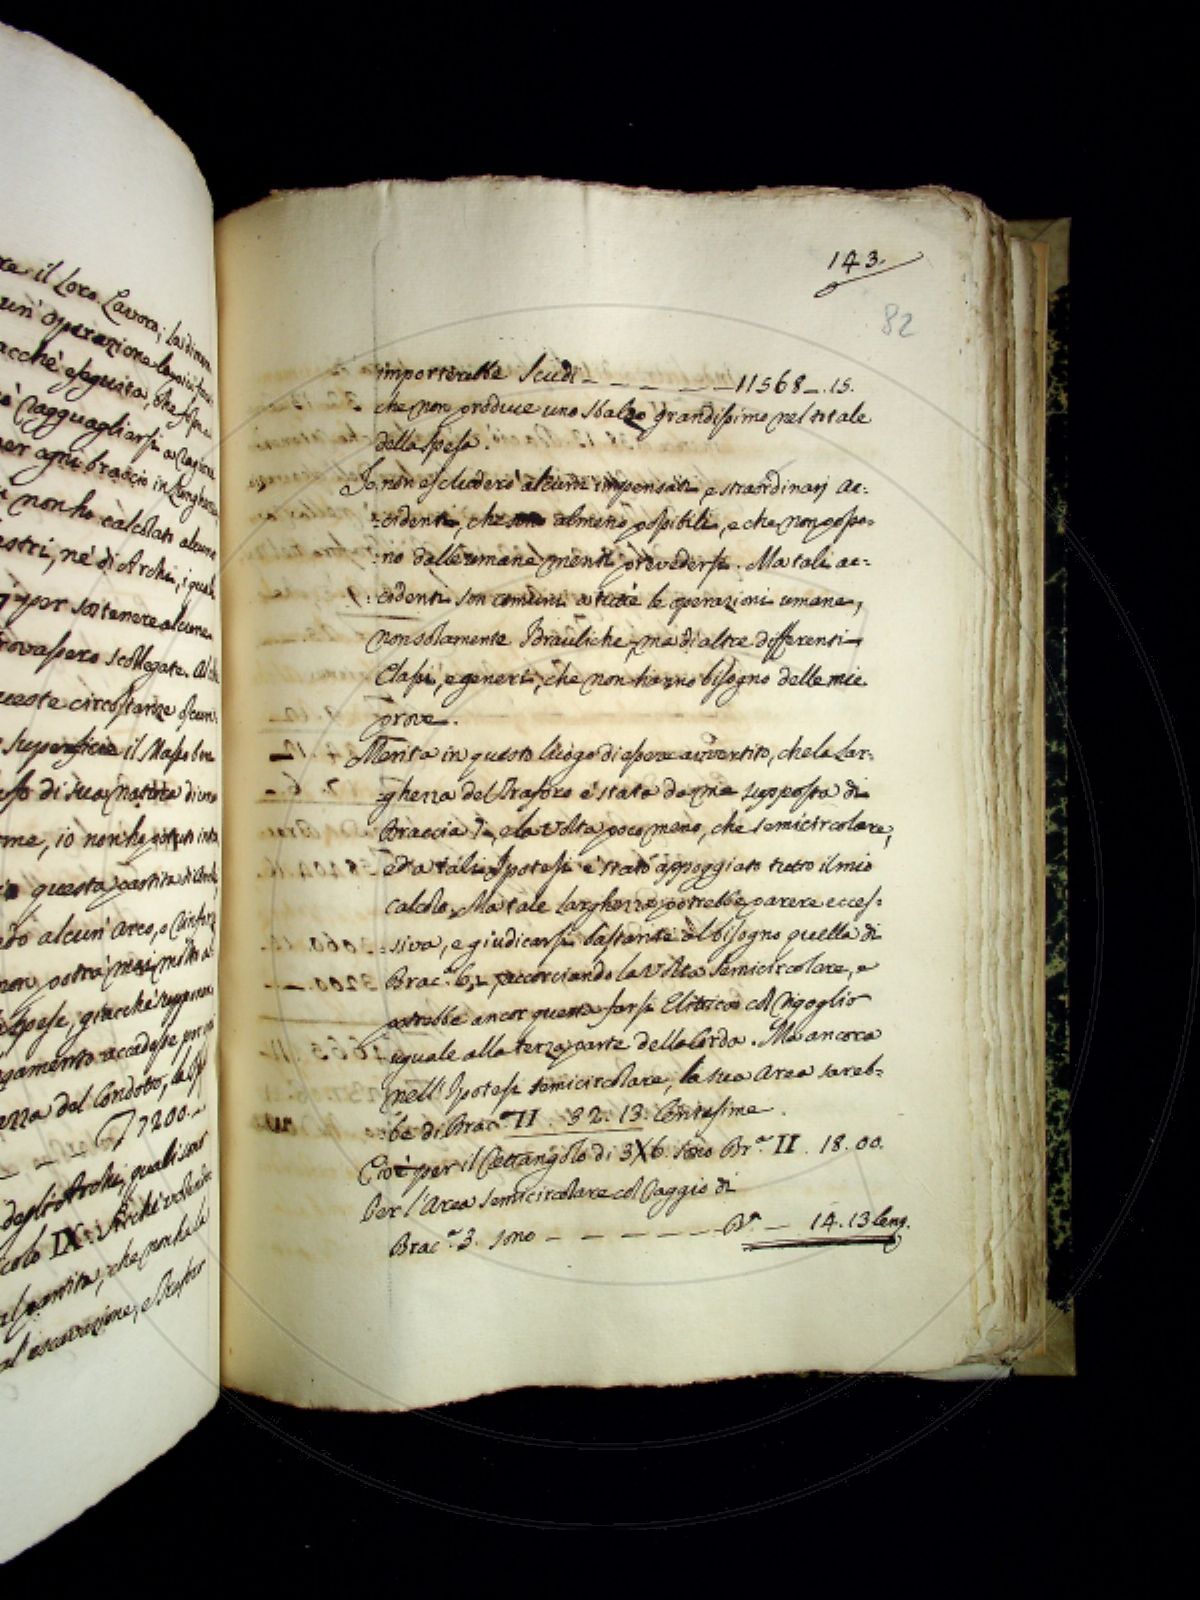 re il Loro Lavoro; la
un' operazione
acchè eseguita, che
ragguagliarsi a ragione
per ogni braccio in lunghezza
non ho calcolato alcune
estri, nè di Archi, i quali
per sostenere alcune
trovassero scollegate.
queste circostanze
superficie il Masso
di sua natura di uno
rme, io non ho potuto
questa partita di
alcun' Arco, o
non potrà mai molto
spese, giacchè
accadesse per
ezza del Condotto, la
7200.
degli Archi, quali
colo IX. Archi
partita, che non ha la
escavazione, e Trasforo
143.
82
importerebbe Scudi - - - - - - 11568 . 15.
che non produce uno sbalzo grandissimo nel totale
della spesa.
Io non escluderò alcuni impensati, e straordinarj ac=
=cidenti, che almeno possibili, e che non posso=
=no dalle umane menti prevedersi. Ma tali ac=
=cidenti son comuni a tutte le operazioni umane,
non solamente Idrauliche, ma di altre differenti
Classi, e generi, che non hanno bisogno delle mie
prove.
Merita in questo luogo di essere avvertito, che la Lar=
=ghezza del Trasforo è stata da me supposta di
Braccia 7., e la Volta poco meno, che semicircolare,
ed a tali Ipotesi è stato appoggiato tutto il mio
calcolo. Ma tale Larghezza potrebbe parere ecces=
=siva, e giudicarsi bastante al bisogno quella di
Brac.ᵃ 6., raccorciando la Volta Semicircolare, e
potrebbe ancor questa farsi Elitticos col rigoglio
uguale alla terza parte della Corda. Ma ancora
nell' Ipotesi semicircolare, la sua Area sareb=
=be di Brac.ᵃ II . 32. 13. Centesime.
Cioè per il Rettangolo di 3X6. sono Br.ᵃ II . 18.00.
Per l'Area semicircolare col Raggio di
Brac.ᵃ 3. sono - - - - - - Bᵃ - 14.13 Cens.